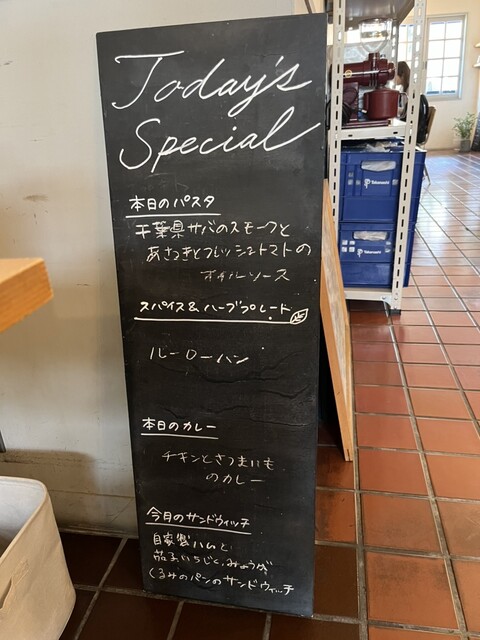 Today's
Special
本日のパスタ
千葉県サバのスモークと
あさつきとフレッシュトマトの
オイルソース
スパイス&ハーブプレート
ルーローハン
本日のカレー
チキンとさつまいも
のカレー
今月のサンドウィッチ
自家製ハムと
茄子いちじく、みょうが
くるみのパンのサンドウィッチ
Takanashi
Takanashi